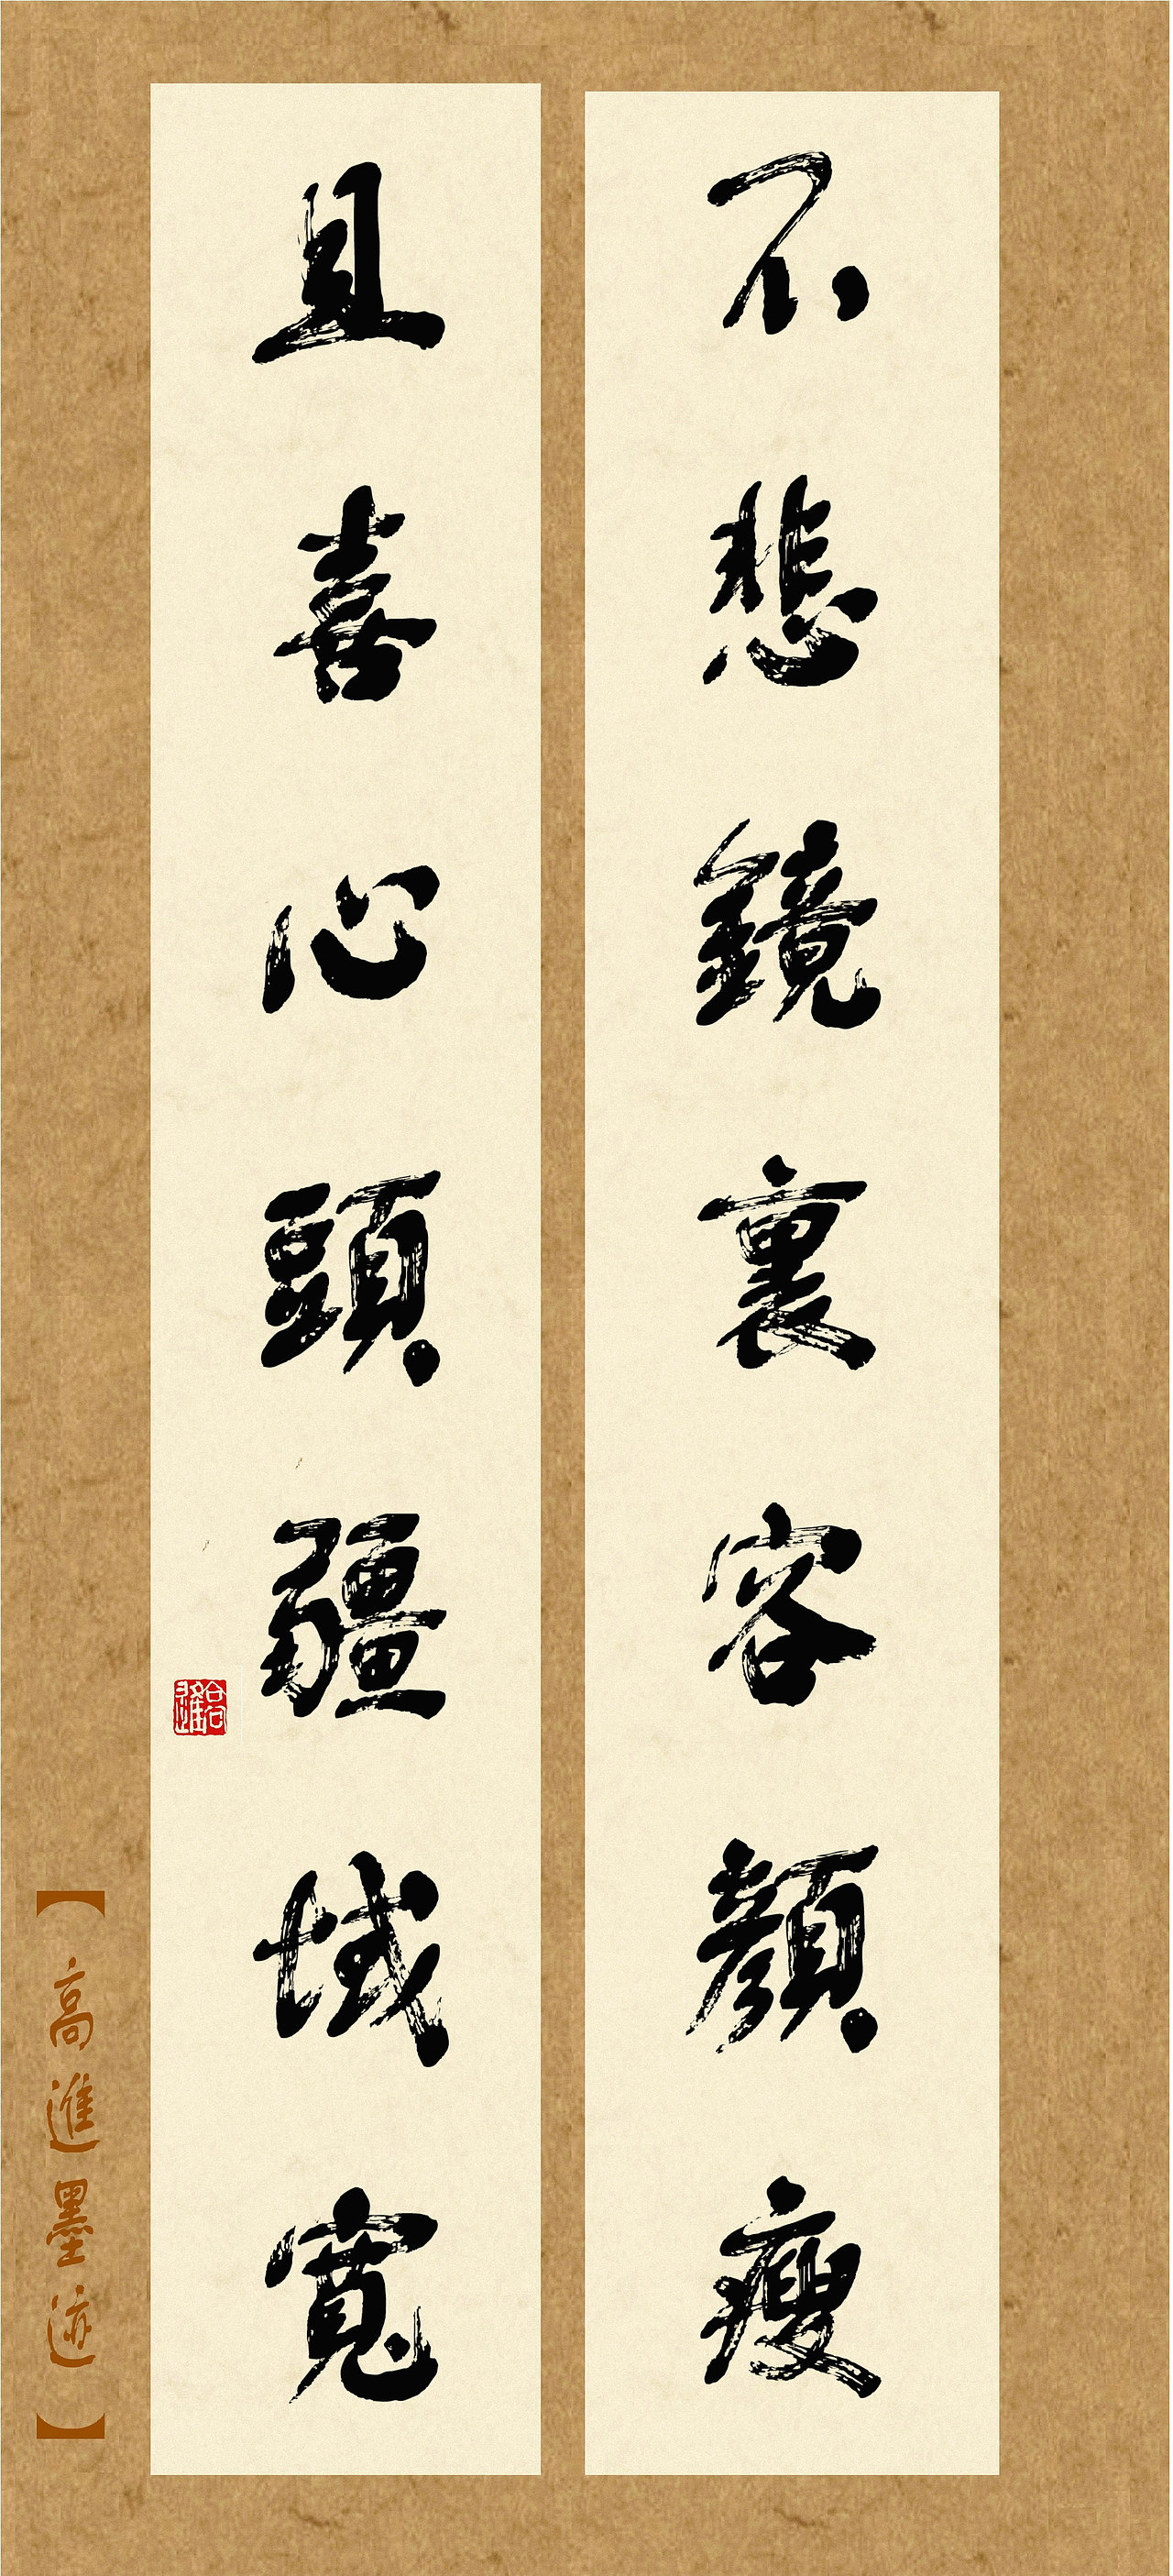 不悲鏡裏容顏瘦
且喜心頭疆域寬
【高進墨迹】